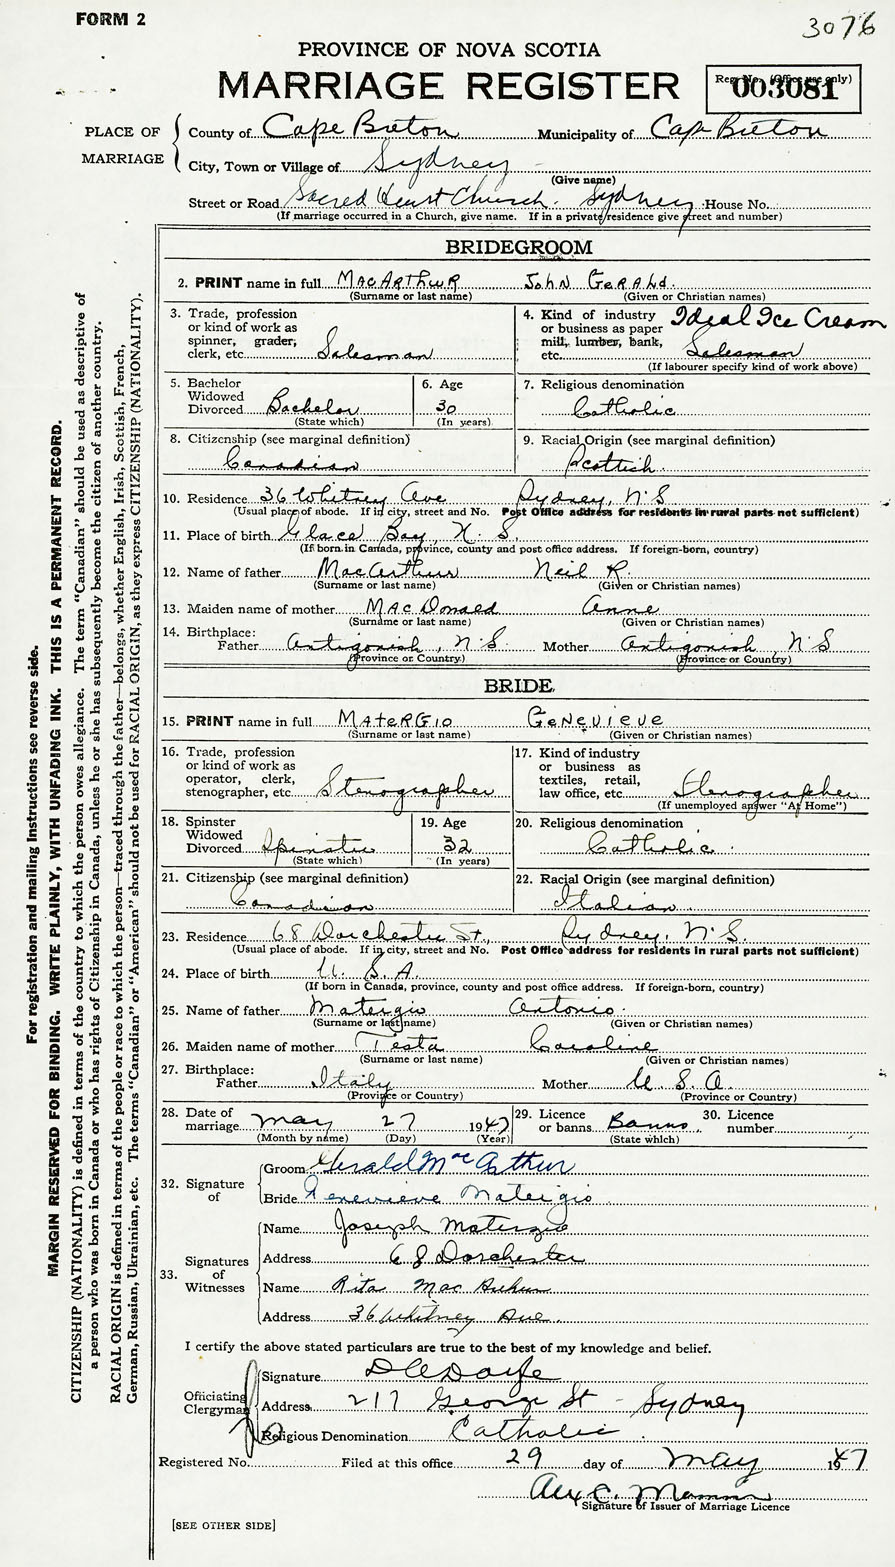 FORM 2
3076
PROVINCE OF NOVA SCOTIA
MARRIAGE REGISTER
Reg. No. (Office use only)
003081
PLACE OF MARRIAGE
County of Cape Breton Municipality of Cape Breton
City, Town or Village of Sydney
(Give name)
Street or Road Sacred Heart Church. Sydney House No.
(If marriage occurred in a Church, give name. If in a private residence give street and number)
BRIDEGROOM
2. PRINT name in full MacARTHUR JOHN GERALD.
(Surname or last name) (Given or Christian names)
3. Trade, profession or kind of work as spinner, grader, clerk, etc. Salesman
4. Kind of industry or business as paper mill, lumber, bank, etc. Ideal Ice Cream Salesman
(If labourer specify kind of work above)
5. Bachelor Widowed Divorced Bachelor
(State which)
6. Age 30
(In years)
7. Religious denomination Catholic
8. Citizenship (see marginal definition) Canadian
9. Racial Origin (see marginal definition) Scottish
10. Residence 36 Whitney Ave Sydney, N.S
(Usual place of abode. If in city, street and No. Post Office address for residents in rural parts not sufficient)
11. Place of birth Glace Bay, N. S.
(If born in Canada, province, county and post office address. If foreign-born, country)
12. Name of father MacArthur Neil R.
(Surname or last name) (Given or Christian names)
13. Maiden name of mother MacDonald Anne
(Surname or last name) (Given or Christian names)
14. Birthplace: Father Antigonish, N.S. Mother Antigonish, N S
(Province or Country) (Province or Country)
BRIDE
15. PRINT name in full MATERGIO GENEVIEVE
(Surname or last name) (Given or Christian names)
16. Trade, profession or kind of work as operator, clerk, stenographer, etc. Stenographer
17. Kind of industry or business as textiles, retail, law office, etc. Stenographer
(If unemployed answer "At Home")
18. Spinster Widowed Divorced Spinster
(State which)
19. Age 32
(In years)
20. Religious denomination Catholic.
21. Citizenship (see marginal definition) Canadian
22. Racial Origin (see marginal definition) Italian
23. Residence 68 Dorchester St., Sydney, N.S.
(Usual place of abode. If in city, street and No. Post Office address for residents in rural parts not sufficient)
24. Place of birth U. S. A.
(If born in Canada, province, county and post office address. If foreign-born, country)
25. Name of father Matergio Antonio
(Surname or last name) (Given or Christian names)
26. Maiden name of mother Testa Caroline
(Surname or last name) (Given or Christian names)
27. Birthplace: Father Italy Mother U S A.
(Province or Country) (Province or Country)
28. Date of marriage May 27 1947
(Month by name) (Day) (Year)
29. Licence or banns Banns
(State which)
30. Licence number
32. Signature of
Groom Gerald MacArthur
Bride Genevieve Matergio
33. Signatures of Witnesses
Name Joseph Matergio
Address 68 Dorchester
Name Rita MacArthur
Address 36 Whitney Ave.
I certify the above stated particulars are true to the best of my knowledge and belief.
Officiating Clergyman
Signature
Address 217 George St - Sydney
Religious Denomination Catholic
Registered No. Filed at this office 29 day of May 1947
Signature of Issuer of Marriage Licence
[SEE OTHER SIDE]
For registration and mailing instructions see reverse side.
MARGIN RESERVED FOR BINDING. WRITE PLAINLY, WITH UNFADING INK. THIS IS A PERMANENT RECORD.
CITIZENSHIP (NATIONALITY) is defined in terms of the country to which the person owes allegiance. The term "Canadian" should be used as descriptive of
a person who was born in Canada or who has rights of Citizenship in Canada, unless he or she has subsequently become the citizen of another country.
RACIAL ORIGIN is defined in terms of the people or race to which the person—traced through the father—belongs, whether English, Irish, Scottish, French,
German, Russian, Ukrainian, etc. The terms "Canadian" or "American" should not be used for RACIAL ORIGIN, as they express CITIZENSHIP (NATIONALITY).